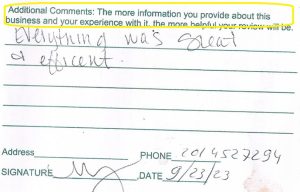 Additional Comments: The more information you provide about this
business and your experience with it, the more helpful your review will be.
Everything was great
& efficent.
Address
PHONE 2014527294
SIGNATURE
DATE 9/23/23